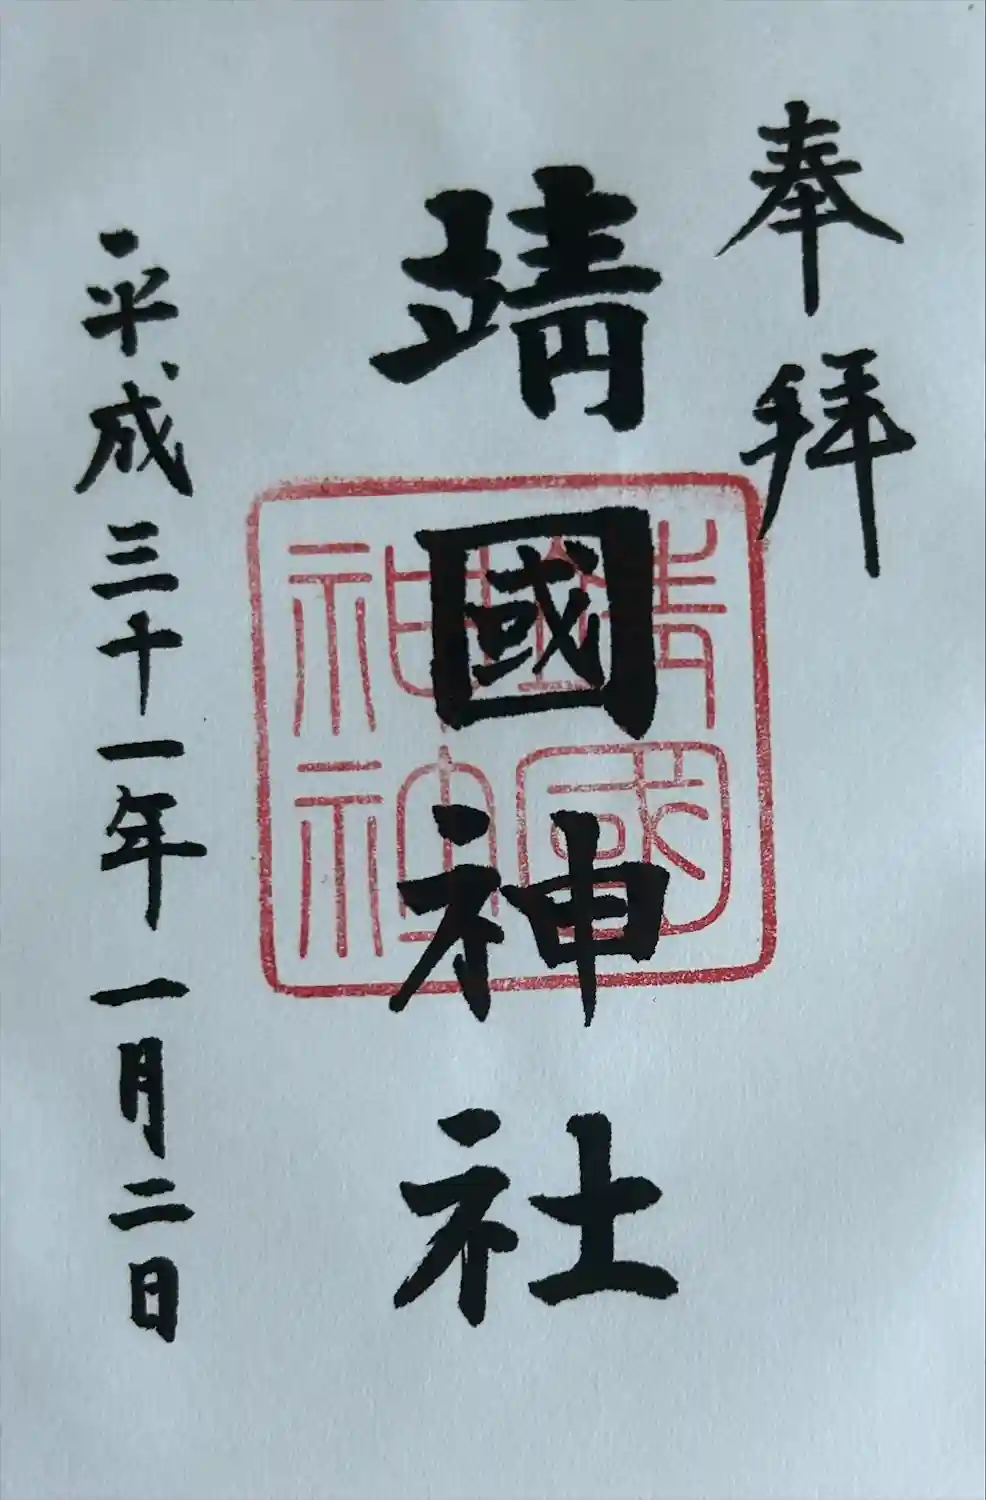 奉拝
靖國神社
靖國
神社
平成三十一年一月二日